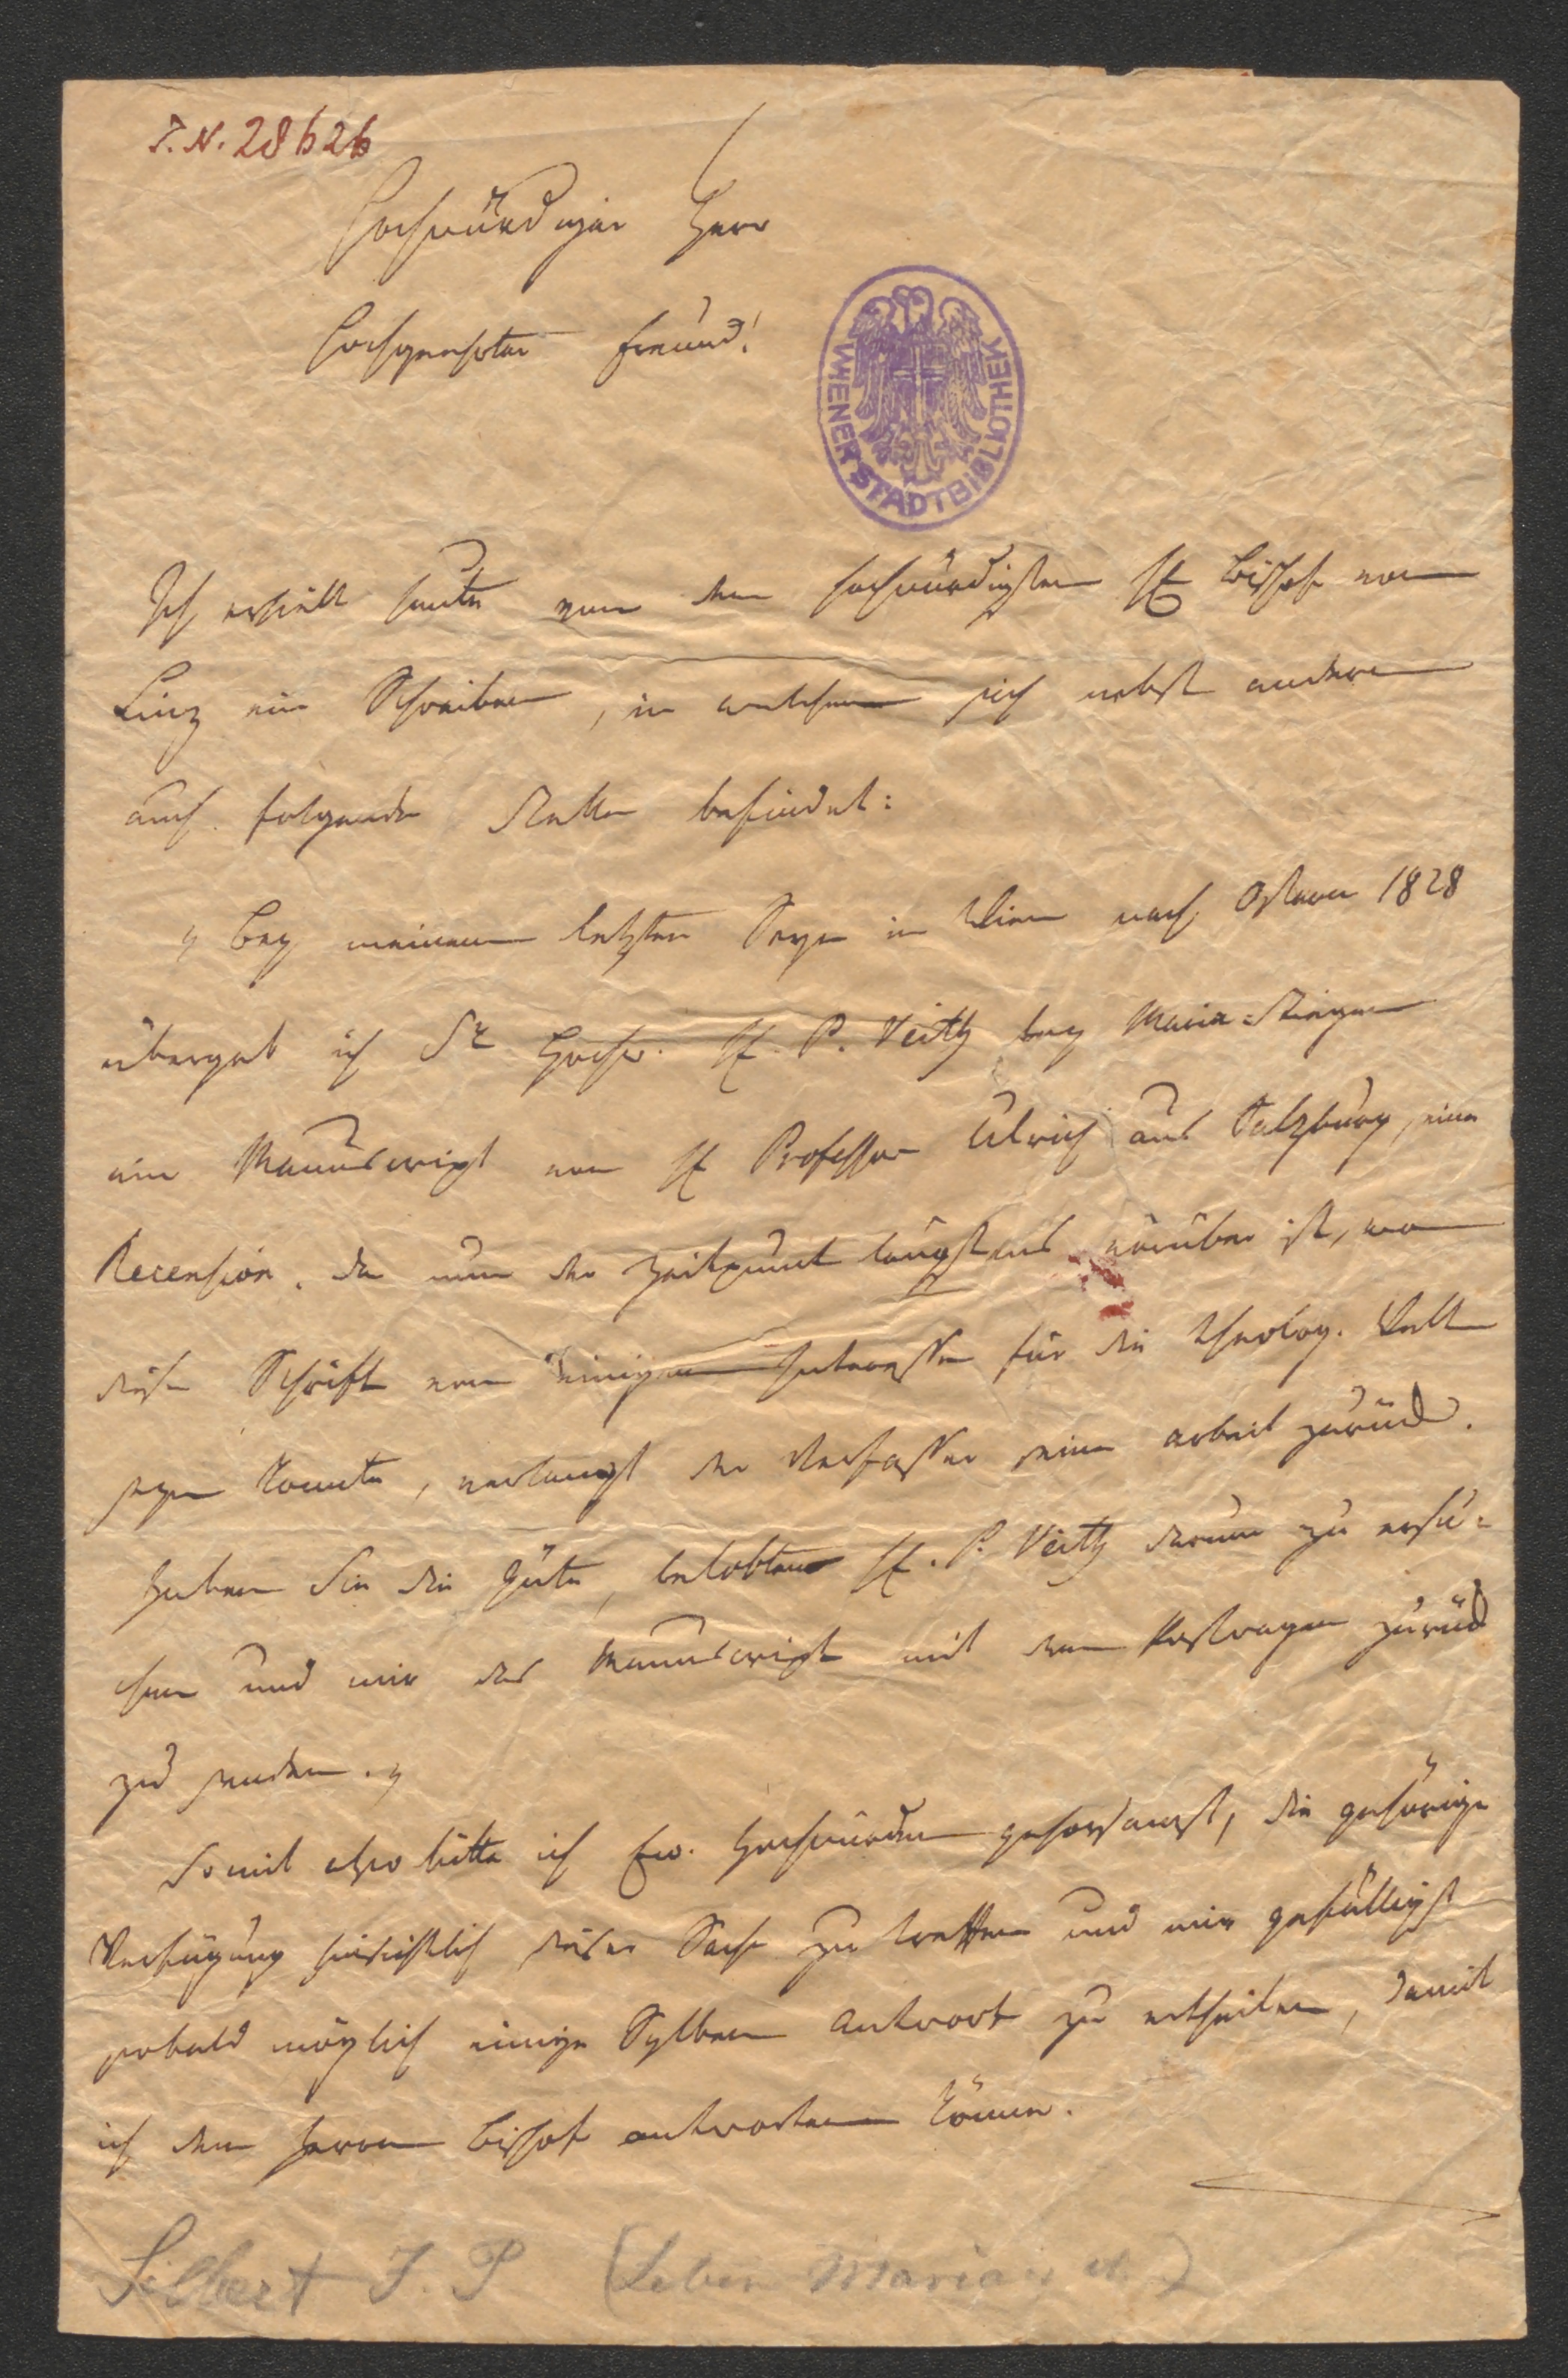 I.N. 28626
Hochwürdiger Herr
Hochgeehrter Freund!
WIENER STADTBIBLIOTHEK
Ich erhielt heute von dem hochwürdigsten H. Bischof von
Linz ein Schreiben, in welchem sich nebst anderen
auch folgende Stelle befindet:
„Bey meinem letzten Seyn in Wien nach Ostern 1828
übergab ich Sr Hochw. H. P. Veith bey Maria-Stiegen
ein Manuscript von H Professor Ulrich aus Salzburg, eine
Recension. Da nun der Zeitpunct längstens vorüber ist, wo
diese Schrift von einigem Interesse für die theolog. Welt
seyn konnte, verlangt der Verfasser seine Arbeit zurück.
Haben Sie die Güte, belobten H. P. Veith darum zu ersu-
chen und mir das Manuscript mit dem Postwagen zurück
zu senden.„
Somit also bitte ich Ew. Hochwürden gehorsamst, die gehörige
Verfügung hinsichtlich dieser Sache zu treffen und mir gefälligst
sobald möglich einige Sylben Antwort zu ertheilen, damit
ich dem Herrn Bischof antworten könne.
Silbert J. P (Leben Mariä